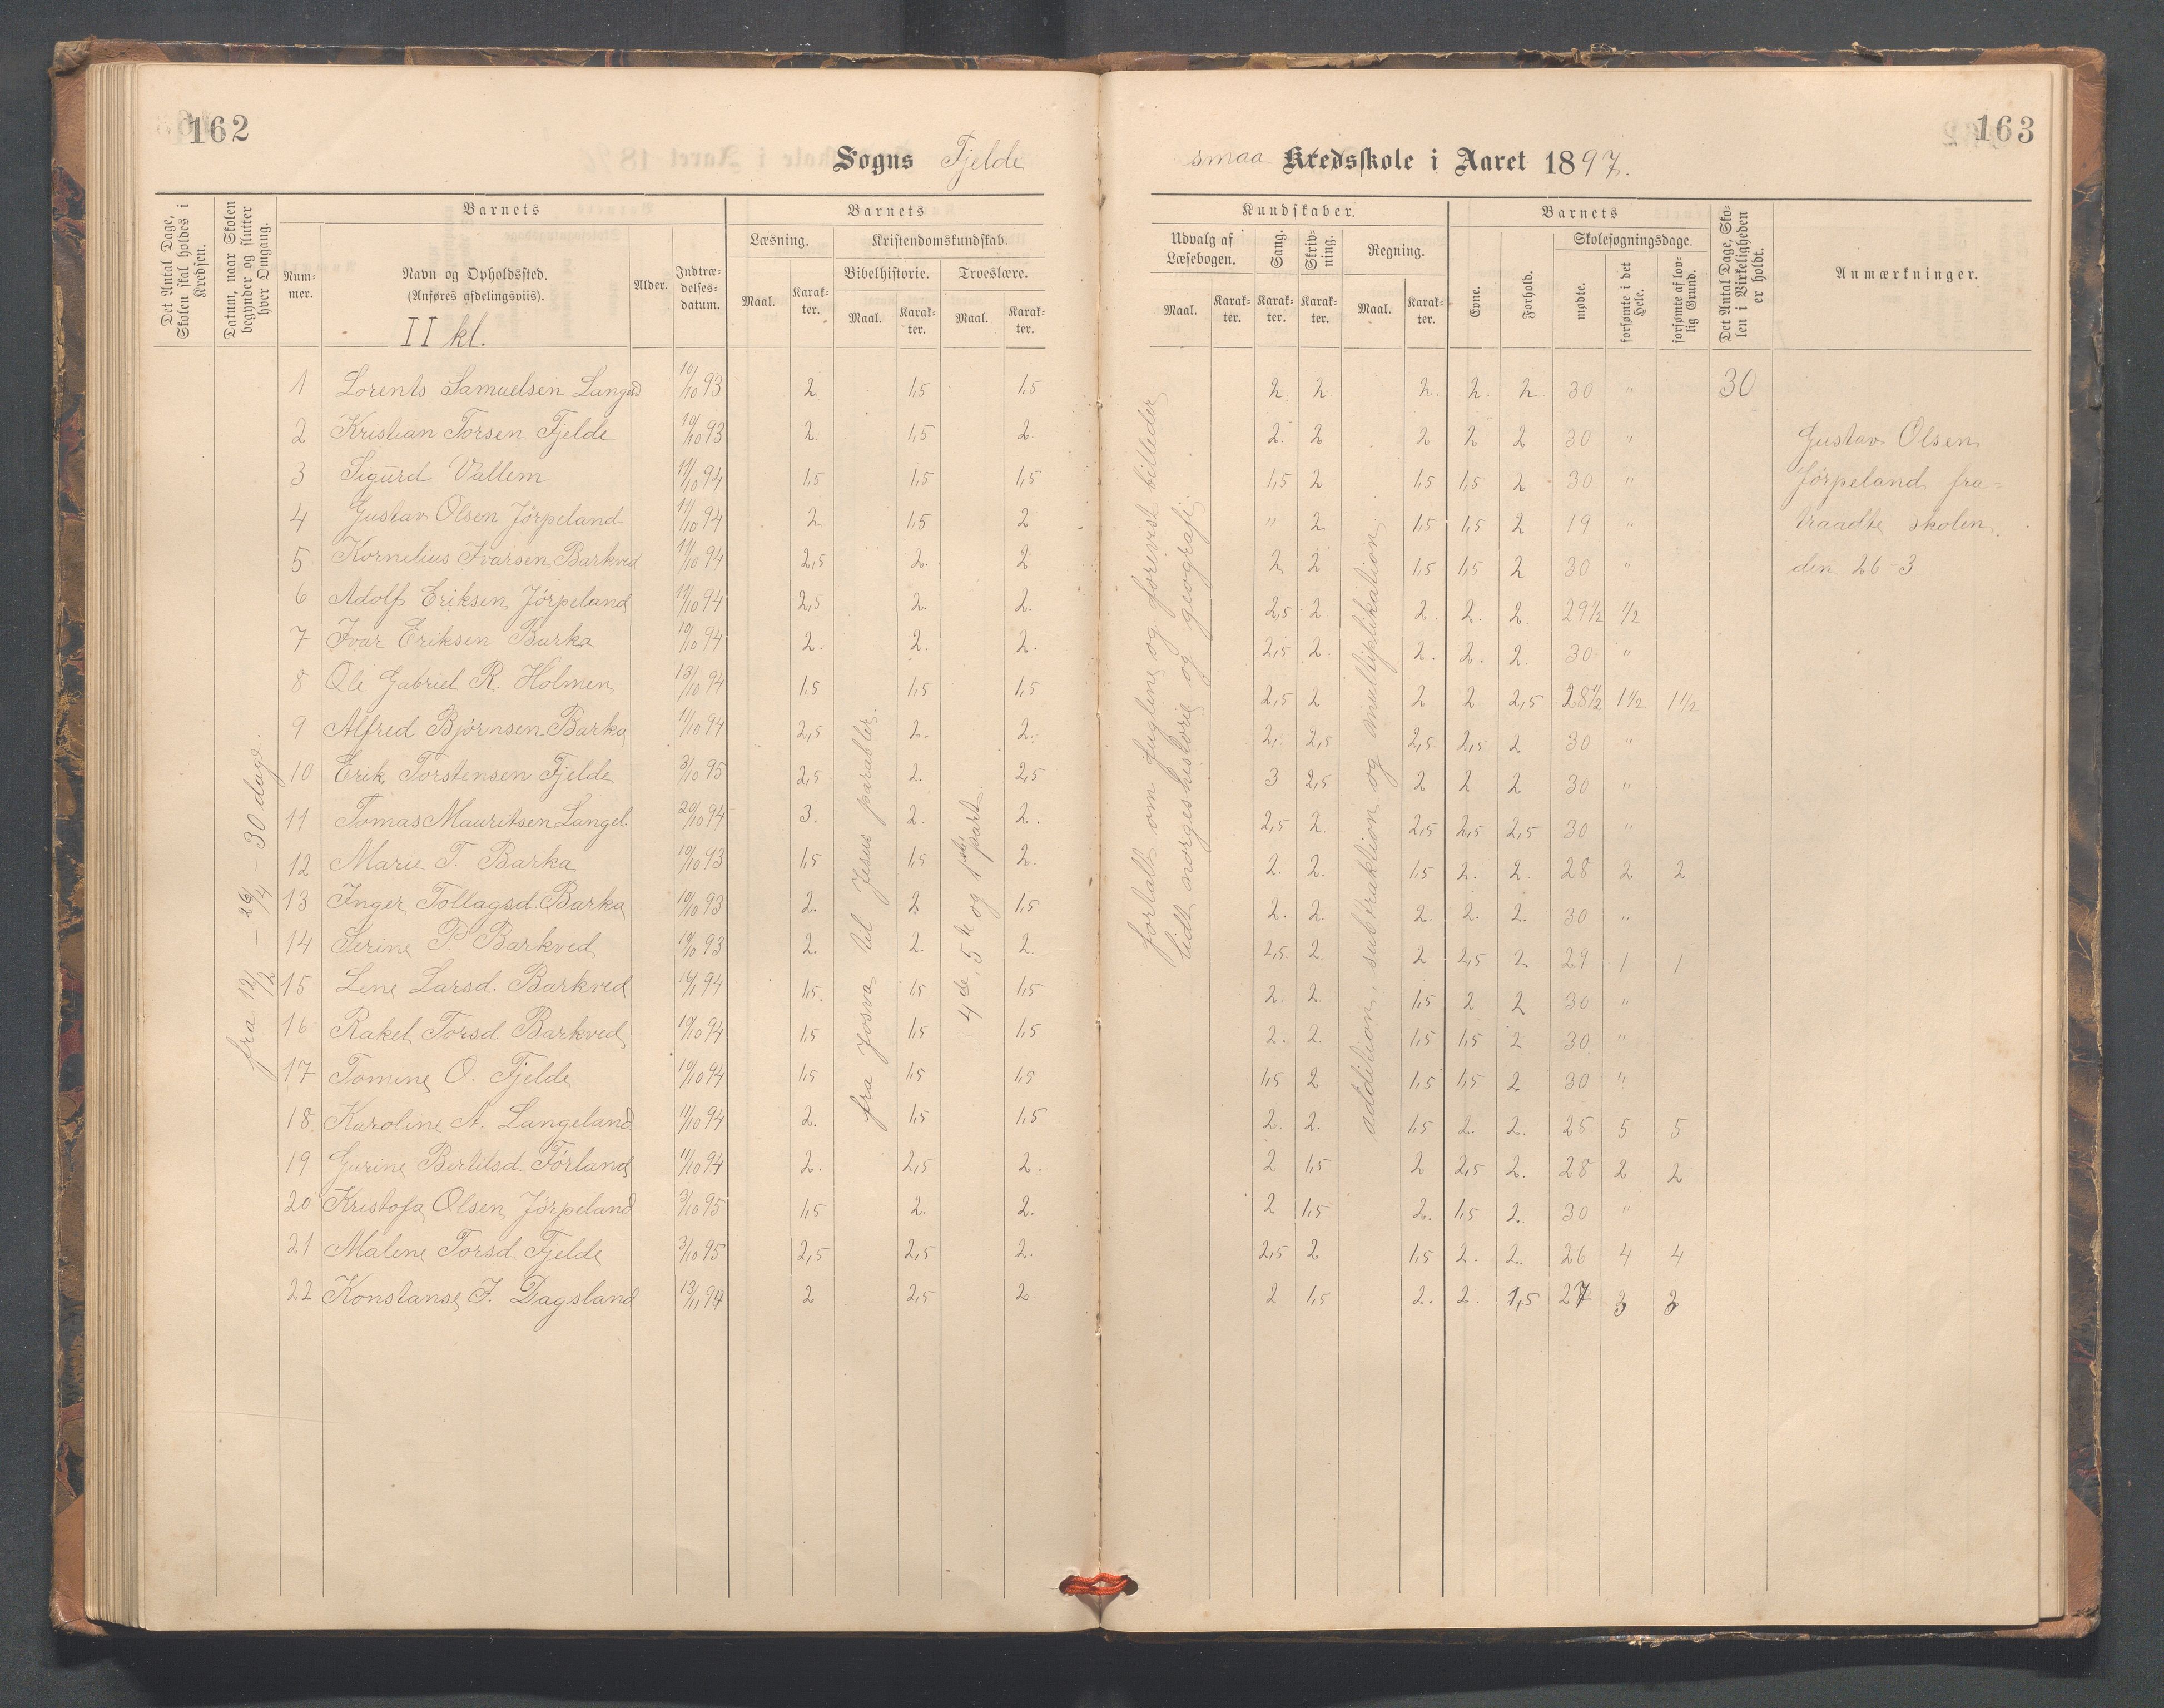 162
Sogns Fjelde
Det Antal Dage, Skolen skal holdes i Kredsen.
Datum, naar Skolen begynder og slutter hver Omgang.
Barnets
Barnets
Num-mer.
Navn og Opholdssted.
(Anføres afdelingsviis).
II kl.
Alder.
Indtræ-delses-datum.
Læsning.
Kristendomskundskab.
Bibelhistorie.
Troeslære.
Maal.
Karak-ter.
Maal.
Karak-ter.
Maal.
Karak-ter.
fra 12/2 – 26/4 – 30 dage.
fra Josva til Jesus parabler.
4de, 5te og 1ste part.
1 Lorents Samuelsen Langed 10/10 93 2 1,5 1,5
2 Kristian Torsen Fjelde 10/10 93 2. 1,5 2.
3 Sigurd Vallem 11/10 94 1,5 1,5 1,5
4 Gustav Olsen Jörpeland 11/10 94 2 1,5 2
5 Kornelius Ivarsen Barkved 11/10 94 2,5 2. 2
6 Adolf Eriksen Jörpeland 11/10 94 2,5 2. 2.
7 Ivar Eriksen Barka 10/10 94 2. 2. 2.
8 Ole Gabriel R. Holmen 13/10 94 1,5 1,5 1,5
9 Alfred Bjørnsen Barka 11/10 94 2,5 2. 2.
10 Erik Torstensen Fjelde 3/10 95 2,5 2. 2,5
11 Tomas Mauritsen Langel. 20/10 94 3. 2. 2.
12 Marie T. Barka 10/10 93 1,5 1,5 2.
13 Inger Tollagsd. Barka 10/10 93 2. 2 1,5
14 Serine P Barkved 10/10 93 2. 2. 2.
15 Lene Larsd. Barkved 94 1,5. 1,5 1,5
16 Rakel Torsd Barkved 10/10 94 1,5 1,5 1,5
17 Tomine O. Fjelde 10/10 94 1,5 1,5 1,5
18. Karoline A. Langeland 11/10 94 2. 1,5 1,5
19 Gurine Bertilsd. Förland 11/10 94 2. 2,5 2.
20 Kristofa Olsen Jörpeland 3/10 95 1,5 2. 2.
21 Malene Torsd. Fjelde 3/10 95 2,5 2,5 2.
22 Konstanse J. Dagsland 13/11 94 2 2,5 2.
163
smaa Kredsskole i Aaret 1897.
Kundskaber.
Barnets
Det Antal Dage, Sko-len i Virkeligheden er holdt.
Anmærkninger.
Udvalg af Læsebogen.
Sang.
Skriv-ning.
Regning.
Evne.
Forhold.
Skolesøgningsdage.
mødte.
forsømte i det Hele.
forsømte af lov-lig Grund.
Maal.
Karak-ter.
Karak-ter.
Karak-ter.
Maal.
Karak-ter.
fortalt om fuglene og forevist billeder
lidt norgeshistorie og geografi.
addition, subtraktion og multiplikation.
2. 2. 2. 2. 2 30 " 30
2. 2 2 2 2 30 "
1,5 2 1,5 1,5 2 30 "
" 2 1,5 1,5 2 19 "
2 2 1,5 1,5 2 30 "
2,5 2 2 2. 2. 29 1/2 1/2
2,5 2. 2. 2. 2. 30 "
2,5 2 2 2 2,5 28 1/2 1 1/2 1 1/2
2. 2,5 2,5 2,5 2 30 "
3 2,5 2 2 2 30 "
2,5 2. 2,5 2,5 2,5 30 "
2. 2. 1,5 2. 2. 28 2 2
2. 2. 2. 2. 2. 30 "
2,5. 2. 2 2,5 2 29 1 1
2. 2. 1,5 2 2 30 "
2. 2. 1,5 1,5 2 30 "
1,5 2 1,5 1,5 2 30 "
2. 2. 1,5 2. 2. 25 5 5
2 1,5 2 2,5 2. 28 2 2
2 1,5 2. 1,5 2. 30 "
2,5 2 1,5 2. 2. 26 4 4
2 1,5 2. 2. 1,5 27 3 3
Gustav Olsen
Jörpeland fra-
traadte skolen
den 26-3.